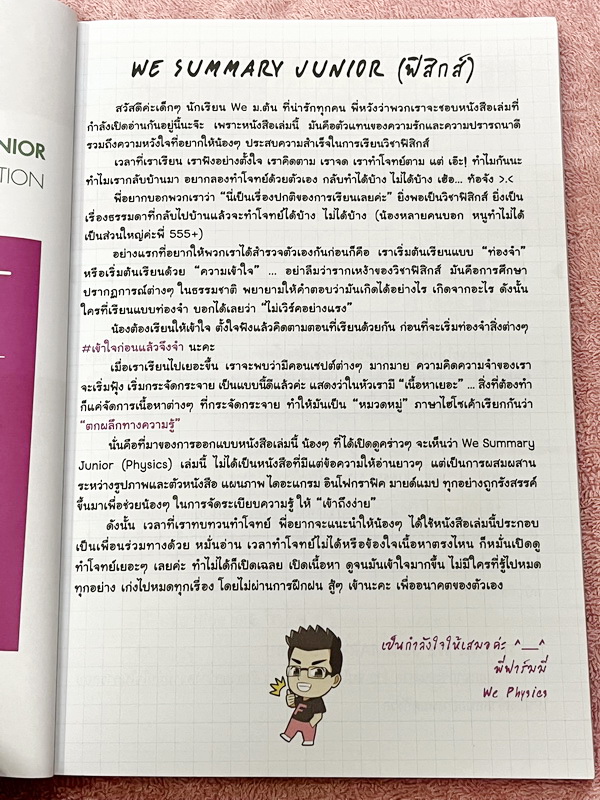 NIOR
TION
WE SUMMARY JUNIOR (ฟิสิกส์)
สวัสดีค่ะเด็กๆ นักเรียน We ม.ต้น ที่น่ารักทุกคน พี่หวังว่าพวกเราจะชอบหนังสือเล่มที่
กำลังเปิดอ่านกันอยู่นี้นะจ๊ะ เพราะหนังสือเล่มนี้ มันคือตัวแทนของความรักและความปรารถนาดี
รวมถึงความหวังใจที่อยากให้น้องๆ ประสบความสำเร็จในการเรียนวิชาฟิสิกส์
เวลาที่เราเรียน เราฟังอย่างตั้งใจ เราคิดตาม เราจด เราทำโจทย์ตาม แต่ เอ๊ะ! ทำไมกันนะ
ทำไมเรากลับบ้านมา อยากลองทำโจทย์ด้วยตัวเอง กลับทำได้บ้าง ไม่ได้บ้าง เฮ้อ... ท้อจัง >.<
พี่อยากบอกพวกเราว่า "นี่เป็นเรื่องปกติของการเรียนเลยค่ะ" ยิ่งพอเป็นวิชาฟิสิกส์ ยิ่งเป็น
เรื่องธรรมดาที่กลับไปบ้านแล้วจะทำโจทย์ได้บ้าง ไม่ได้บ้าง (น้องหลายคนบอก หนูทำไม่ได้
เป็นส่วนใหญ่ค่ะพี่ 555+)
อย่างแรกที่อยากให้พวกเราได้สำรวจตัวเองกันก่อนก็คือ เราเริ่มต้นเรียนแบบ "ท่องจำ"
หรือเริ่มต้นเรียนด้วย "ความเข้าใจ" ... อย่าลืมว่ารากเหง้าของวิชาฟิสิกส์ มันคือการศึกษา
ปรากฏการณ์ต่างๆ ในธรรมชาติ พยายามให้คำตอบว่ามันเกิดได้อย่างไร เกิดจากอะไร ดังนั้น
ใครที่เรียนแบบท่องจำ บอกได้เลยว่า "ไม่เวิร์คอย่างแรง"
น้องต้องเรียนให้เข้าใจ ตั้งใจฟังแล้วคิดตามตอนที่เรียนด้วยกัน ก่อนที่จะเริ่มท่องจำสิ่งต่างๆ
#เข้าใจก่อนแล้วจึงจำ นะคะ
เมื่อเราเรียนไปเยอะขึ้น เราจะพบว่ามีคอนเซปต์ต่างๆ มากมาย ความคิดความจำของเรา
จะเริ่มฟุ้ง เริ่มกระจัดกระจาย เป็นแบบนี้ดีแล้วค่ะ แสดงว่าในหัวเรามี "เนื้อหาเยอะ" ... สิ่งที่ต้องทำ
ก็แค่จัดการเนื้อหาต่างๆ ที่กระจัดกระจาย ทำให้มันเป็น "หมวดหมู่" ภาษาไฮโซเค้าเรียกกันว่า
"ตกผลึกทางความรู้"
นั่นคือที่มาของการออกแบบหนังสือเล่มนี้ น้องๆ ที่ได้เปิดดูคร่าวๆ จะเห็นว่า We Summary
Junior (Physics) เล่มนี้ ไม่ได้เป็นหนังสือที่มีแต่ข้อความให้อ่านยาวๆ แต่เป็นการผสมผสาน
ระหว่างรูปภาพและตัวหนังสือ แผนภาพ ไดอะแกรม อินโฟกราฟิค มายด์แมป ทุกอย่างถูกรังสรรค์
ขึ้นมาเพื่อช่วยน้องๆ ในการจัดระเบียบความรู้ ให้ "เข้าถึงง่าย"
ดังนั้น เวลาที่เราทบทวนทำโจทย์ พี่อยากจะแนะนำให้น้องๆ ได้ใช้หนังสือเล่มนี้ประกอบ
เป็นเพื่อนร่วมทางด้วย หมั่นอ่าน เวลาทำโจทย์ไม่ได้หรือข้องใจเนื้อหาตรงไหน ก็หมั่นเปิดดู
ทำโจทย์เยอะๆ เลยค่ะ ทำไม่ได้ก็เปิดเฉลย เปิดเนื้อหา ดูจนมันเข้าใจมากขึ้น ไม่มีใครที่รู้ไปหมด
ทุกอย่าง เก่งไปหมดทุกเรื่อง โดยไม่ผ่านการฝึกฝน สู้ๆ เข้านะคะ เพื่ออนาคตของตัวเอง
เป็นกำลังใจให้เสมอค่ะ ^__^
พี่ฟาร์มมี่
We Physics
F